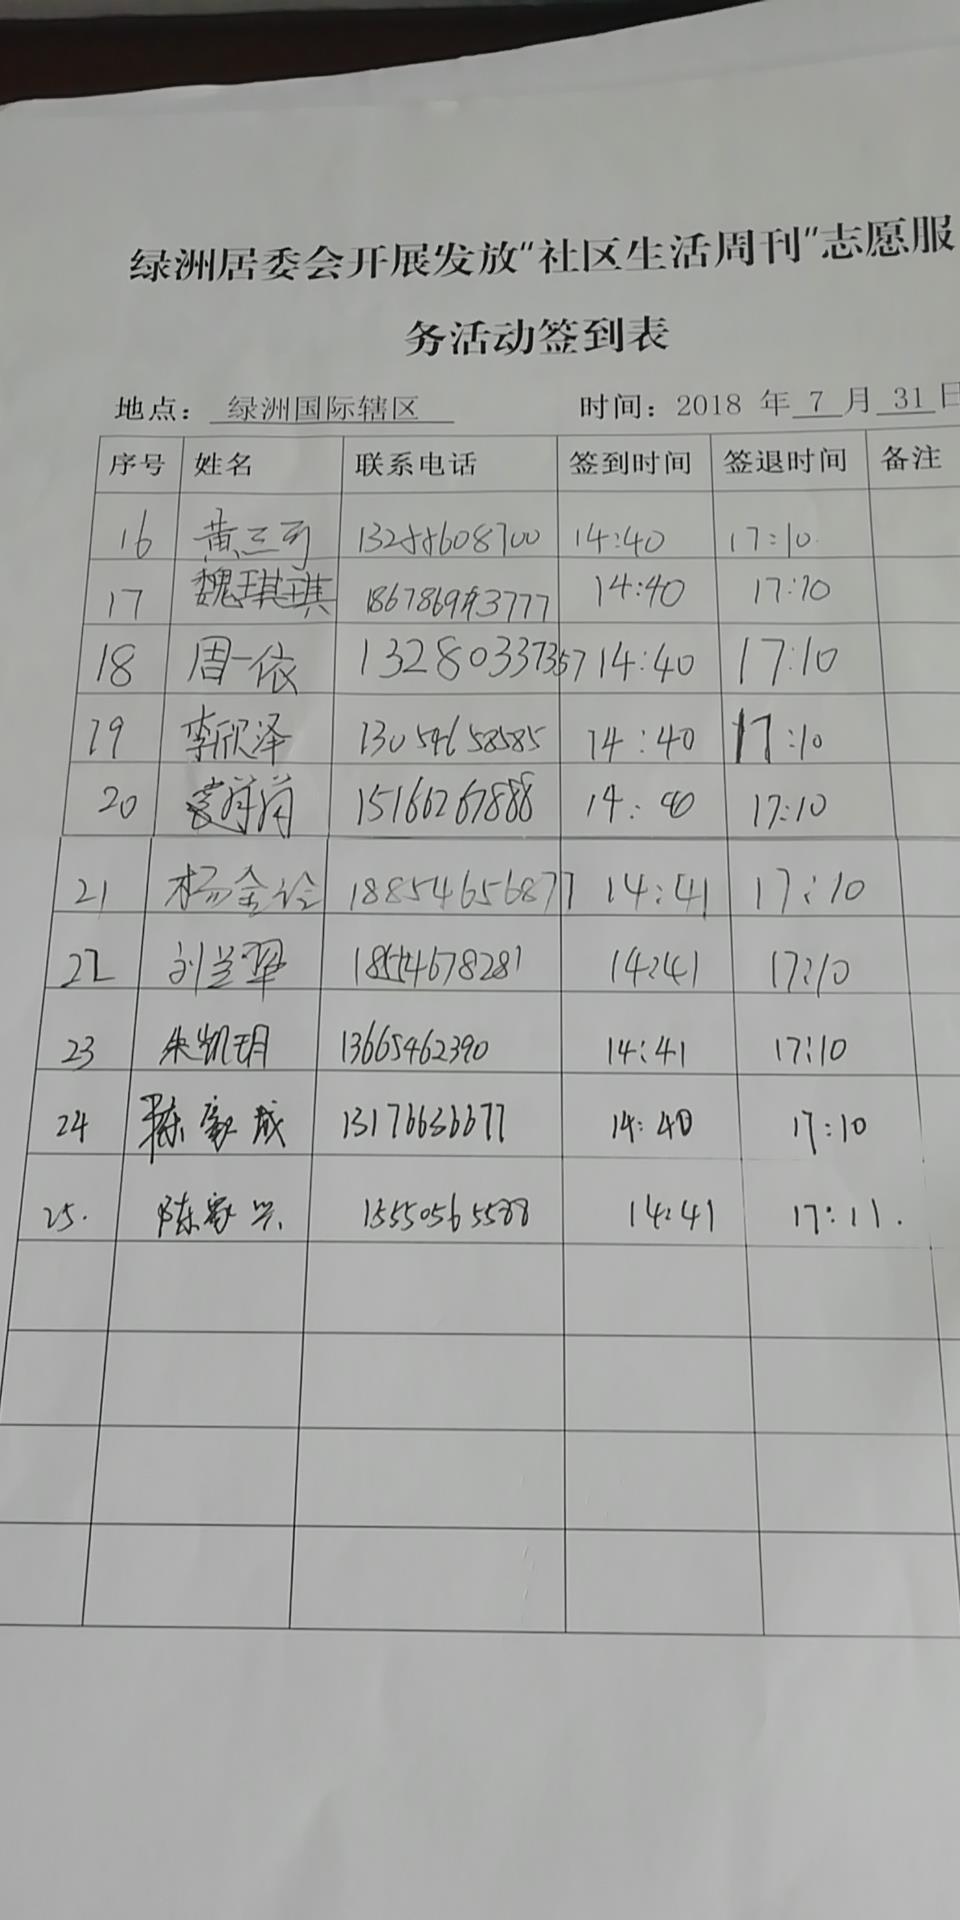 绿洲居委会开展发放“社区生活周刊”志愿服
务活动签到表
地点： 绿洲国际辖区 时间：2018 年 7 月 31 日
序号 姓名 联系电话 签到时间 签退时间 备注
16 黄三可 14:40 17:10
17 魏琪琪 14:40 17:10
18 周一依 13280337357 14:40 17:10
19 李欣泽 13054658585 14:40 17:10
20 15166267888 14:40 17:10
21 杨全 18854656877 14:41 17:10
22 刘兰翠 18554678281 14:41 17:10
23 朱凯玥 13665462390 14:41 17:10
24 陈家成 13176636677 14:40 17:10
25. 陈家兴 15550565588 14:41 17:11.